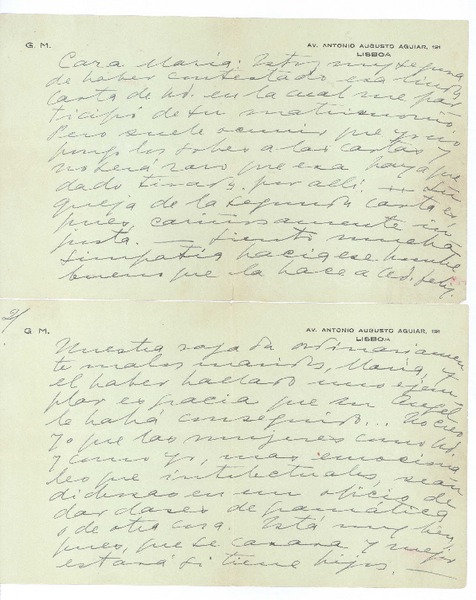 G. M.
AV. ANTONIO AUGUSTO AGUIAR, 191
LISBOA
Cara María: Estoy muy segura
de haber contestado esa linda
carta de Ud. en la cual me par
ticipó de su matrimonio.
Pero suele ocurrir que yo no
pongo los sobres a las cartas y
no será raro que esa haya que
dado tirada por allí. Su
queja de la segunda carta es,
pues, cariñosamente in
justa. — Siento mucha
simpatía hacia ese hombre
bueno que la hace a Ud. feliz.
2/
G. M.
AV. ANTONIO AUGUSTO AGUIAR, 191
LISBOA
Nuestra raza da ordinariamen
te malos maridos, María, y
el haber hallado uno ejem
plar es gracia que su Angel
le habrá conseguido... No creo
yo que las mujeres como Ud.
y como yo, mas emociona
les que intelectuales, sean
dichosas en un oficio de
dar clases de gramática
o de otra cosa. Está muy bien,
pues, que se casara y mejor
estará si tiene hijos. —